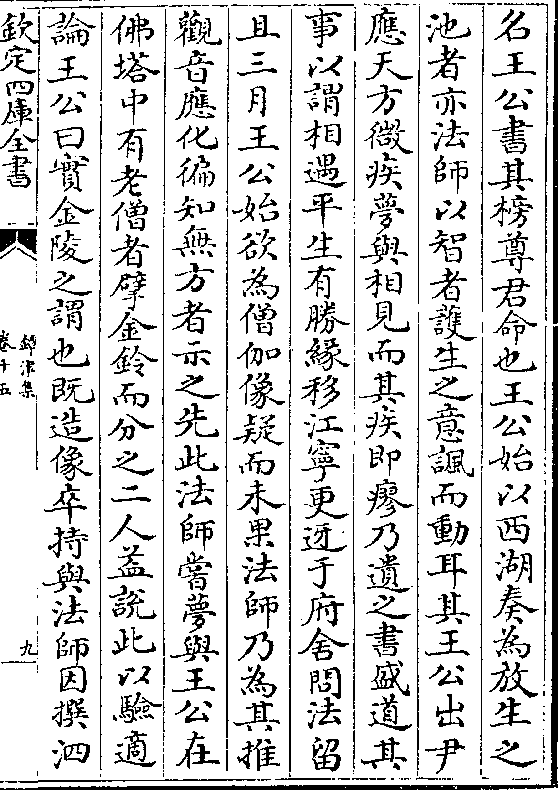 名王公書其榜尊君命也王公始以西湖奏為放生之
池者亦法師以智者護生之意諷而動耳其王公出尹
應天方微疾夢與相見而其疾即瘳乃遺之書盛道其
事以謂相遇平生有勝緣移江寧更迓于府舍問法留
且三月王公始欲為僧伽像疑而未果法師乃為其推
觀音應化徧知無方者示之先此法師嘗夢與王公在
佛塔中有老僧者擘金鈴而分之二人蓋說此以驗適
論王公曰實金陵之謂也既造像卒持與法師因撰泗
欽定四庫全書
鐔津集
卷十五
九